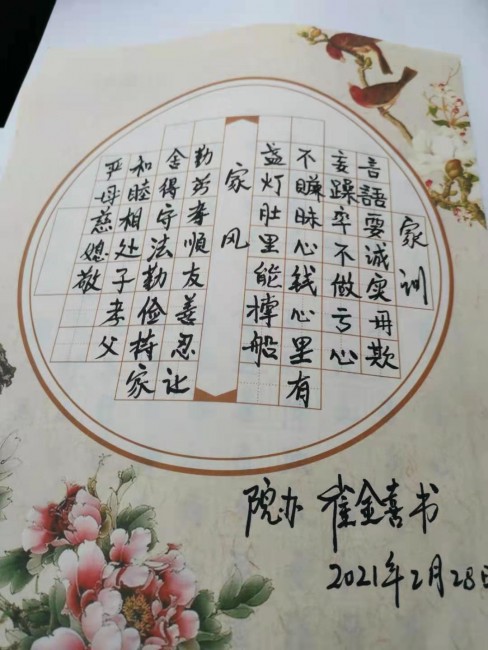 家训
言語要诚实毋欺
妄躁率不做亏心
不赚昧心钱心里有
盏灯肚里能撑船
家风
勤劳孝順友善忍让
舍得守法勤俭持家
和睦相处子孝父
严母慈媳敬
院办 崔金喜书
2021年2月28日